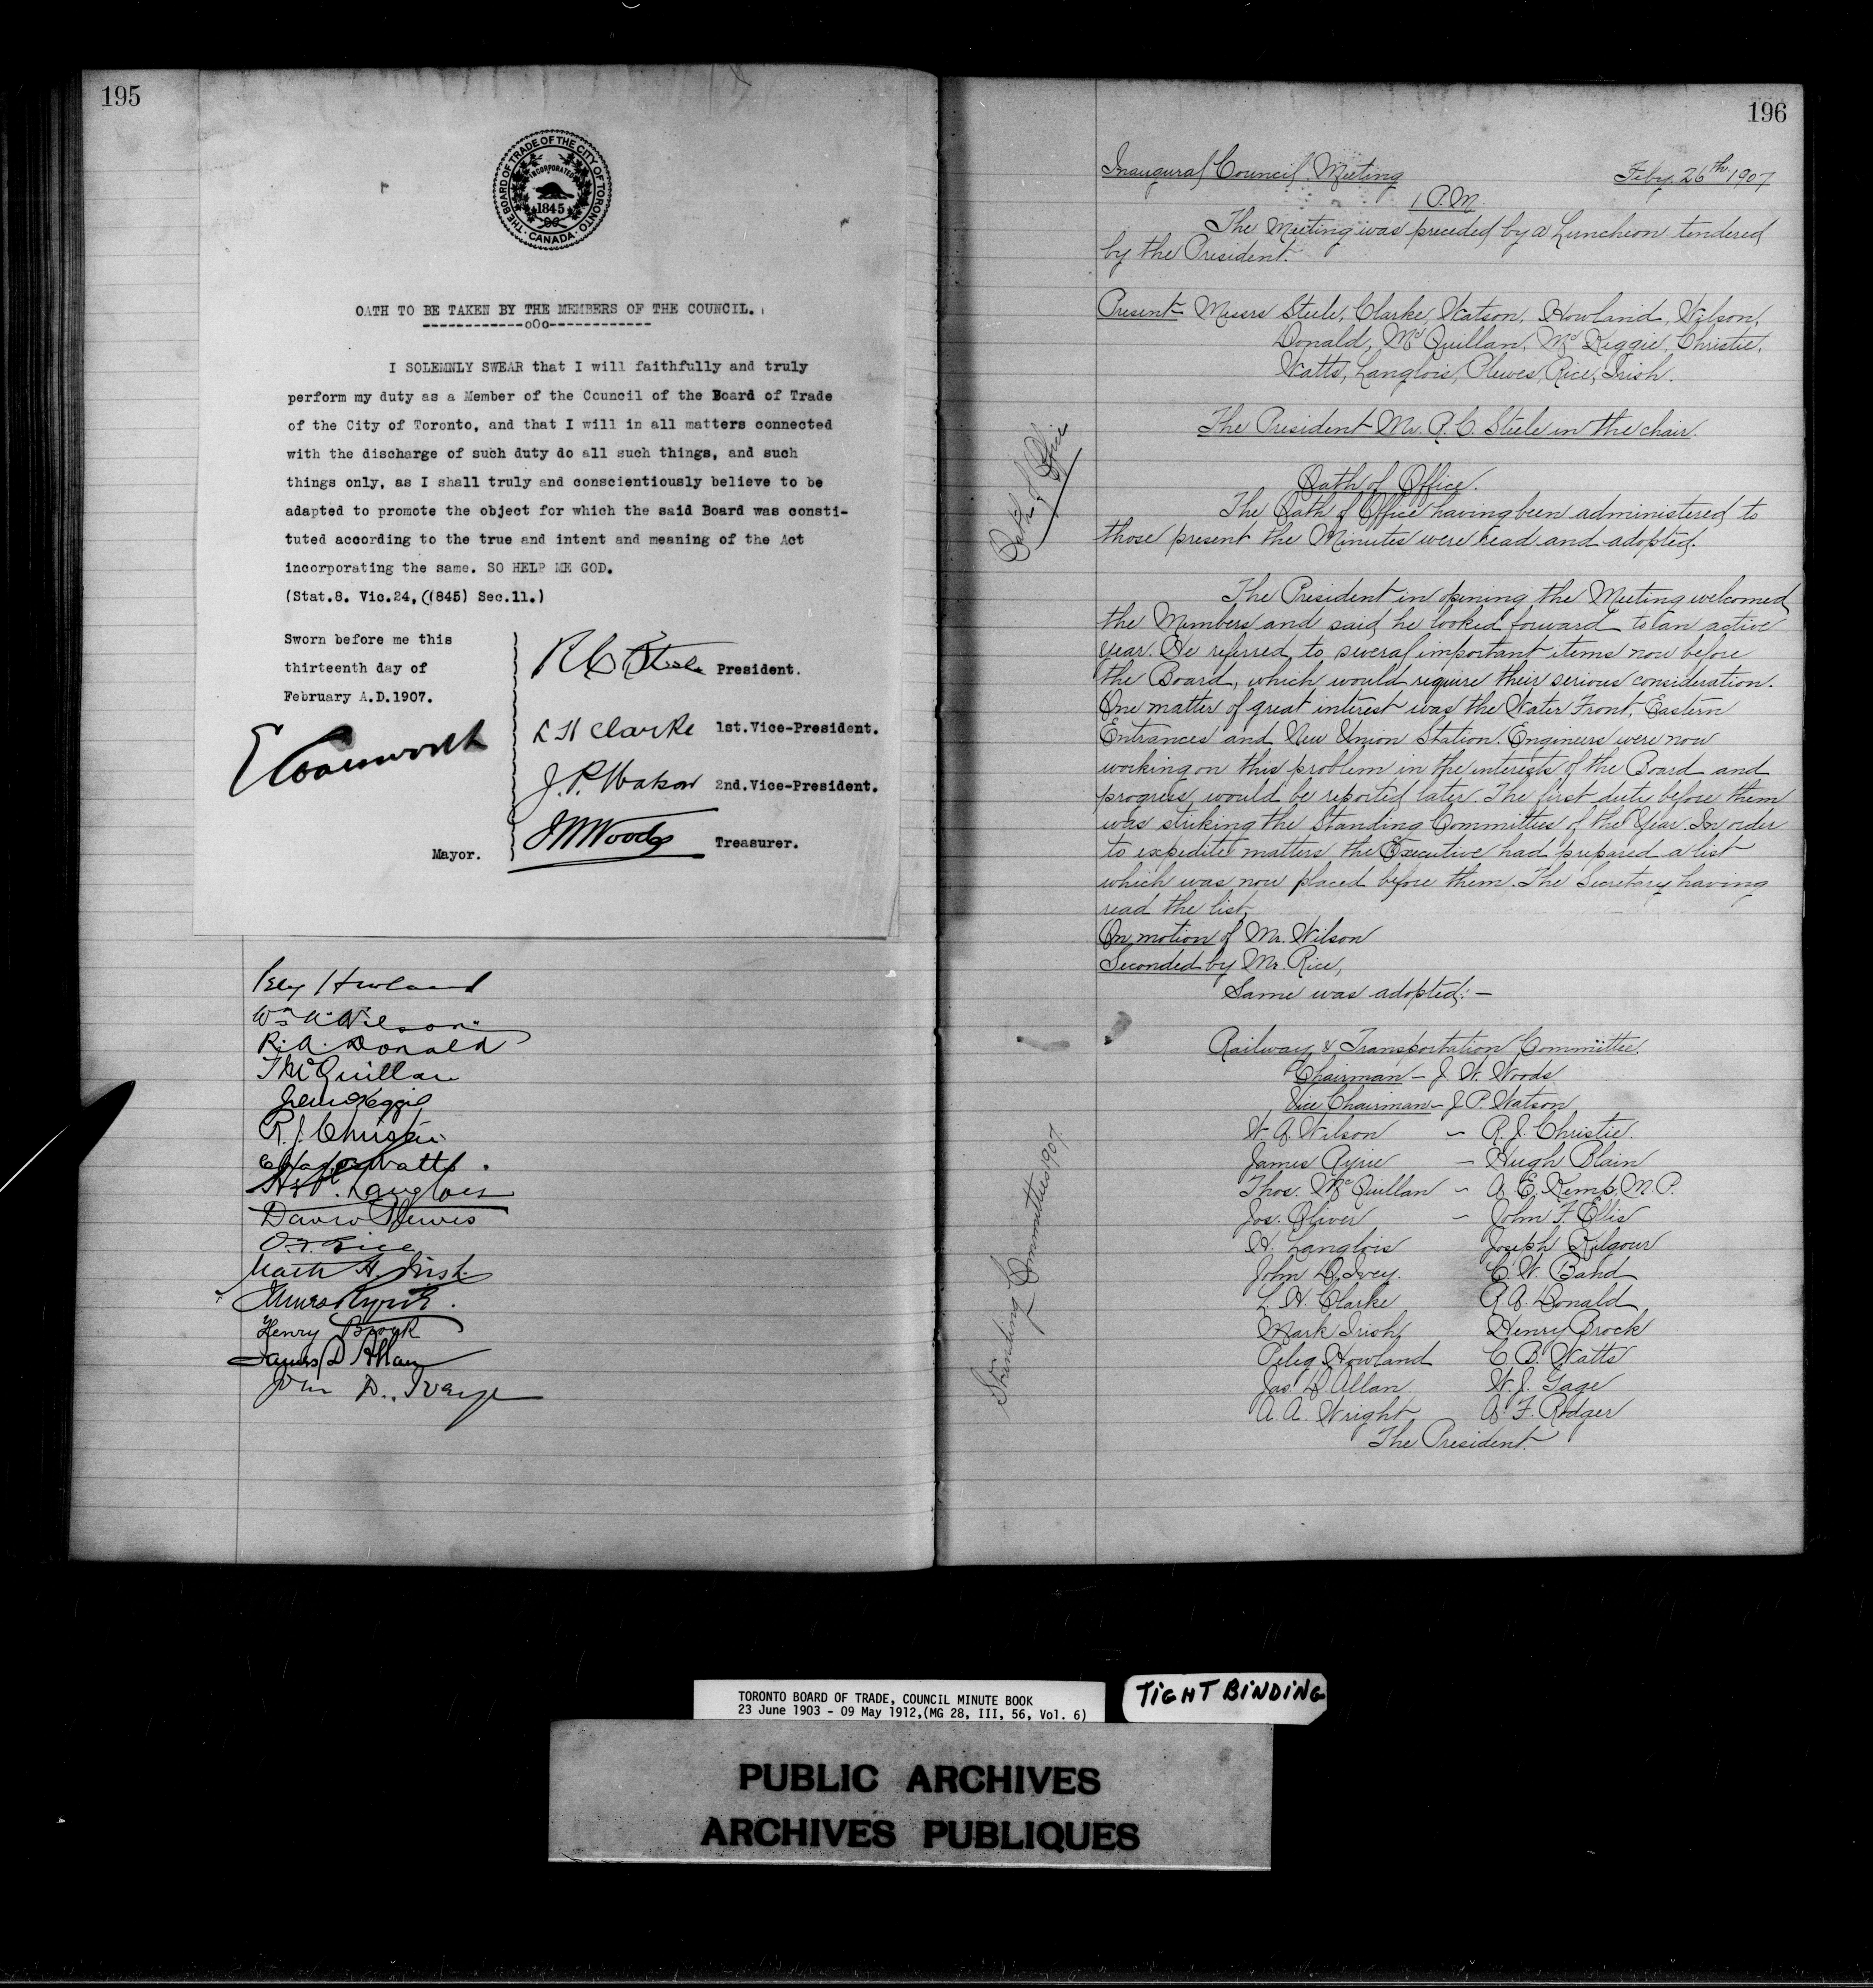 195
THE BOARD OF TRADE OF THE CITY OF TORONTO
INCORPORATED
1845
CANADA
OATH TO BE TAKEN BY THE MEMBERS OF THE COUNCIL.
------------oOo------------
I SOLEMNLY SWEAR that I will faithfully and truly
perform my duty as a Member of the Council of the Board of Trade
of the City of Toronto, and that I will in all matters connected
with the discharge of such duty do all such things, and such
things only, as I shall truly and conscientiously believe to be
adapted to promote the object for which the said Board was consti-
tuted according to the true and intent and meaning of the Act
incorporating the same. SO HELP ME GOD.
(Stat.8. Vic.24, ((845) Sec.11.)
Sworn before me this
thirteenth day of
February A.D.1907.
E Coatsworth
Mayor.
R C Steele President.
L H Clarke 1st.Vice-President.
J. P. Watson 2nd.Vice-President.
J W Woods Treasurer.
Peleg Howland
Wm A. Wilson
R. A. Donald
T McQuillan
R. J. Christie
Watts.
Langlois
David Plewes
Rice
Mark H. Irish
James Ryrie.
Henry Brock
James D Allan
John D. Ivey
196
Inaugural Council Meeting Feby. 26th 1907
1 P.M.
The Meeting was preceded by a Luncheon tendered
by the President.
Present Messrs Steele, Clarke, Watson, Howland, Wilson,
Donald, McQuillan, McKeggie, Christie,
Watts, Langlois, Plewes, Rice, Irish.
The President Mr. R. C. Steele in the chair.
Oath of Office
Oath of Office.
The Oath of Office having been administered to
those present the Minutes were read and adopted.
The President in opening the Meeting welcomed
the Members and said he looked forward to an active
year. He referred to several important items now before
the Board, which would require their serious consideration.
One matter of great interest was the Water Front, Eastern
Entrances and New Union Station. Engineers were now
working on this problem in the interests of the Board and
progress would be reported later. The first duty before them
was striking the Standing Committees of the Year. In order
to expedite matters the Executive had prepared a list
which was now placed before them. The Secretary having
read the list,
On motion of Mr. Wilson
Seconded by Mr. Rice,
Same was adopted:-
Standing Committees 1907
Railway & Transportation Committee.
Chairman - J. W. Woods
Vice Chairman - J. P. Watson
W. A. Wilson - R. J. Christie.
James Ryrie - Hugh Blain
Thos. McQuillan - A. E. Kemp, M.P.
Jos. Oliver - John F. Ellis
H. Langlois Joseph Kilgour
John D. Ivey. C. W. Band
L. H. Clarke R. A. Donald
Mark Irish Henry Brock
Peleg Howland C. B. Watts
Jas. D. Allan W. J. Gage
A. A. Wright A. F. Rodger
The President.
TORONTO BOARD OF TRADE, COUNCIL MINUTE BOOK
23 June 1903 - 09 May 1912,(MG 28, III, 56, Vol. 6)
TIGHT BINDING
PUBLIC ARCHIVES
ARCHIVES PUBLIQUES